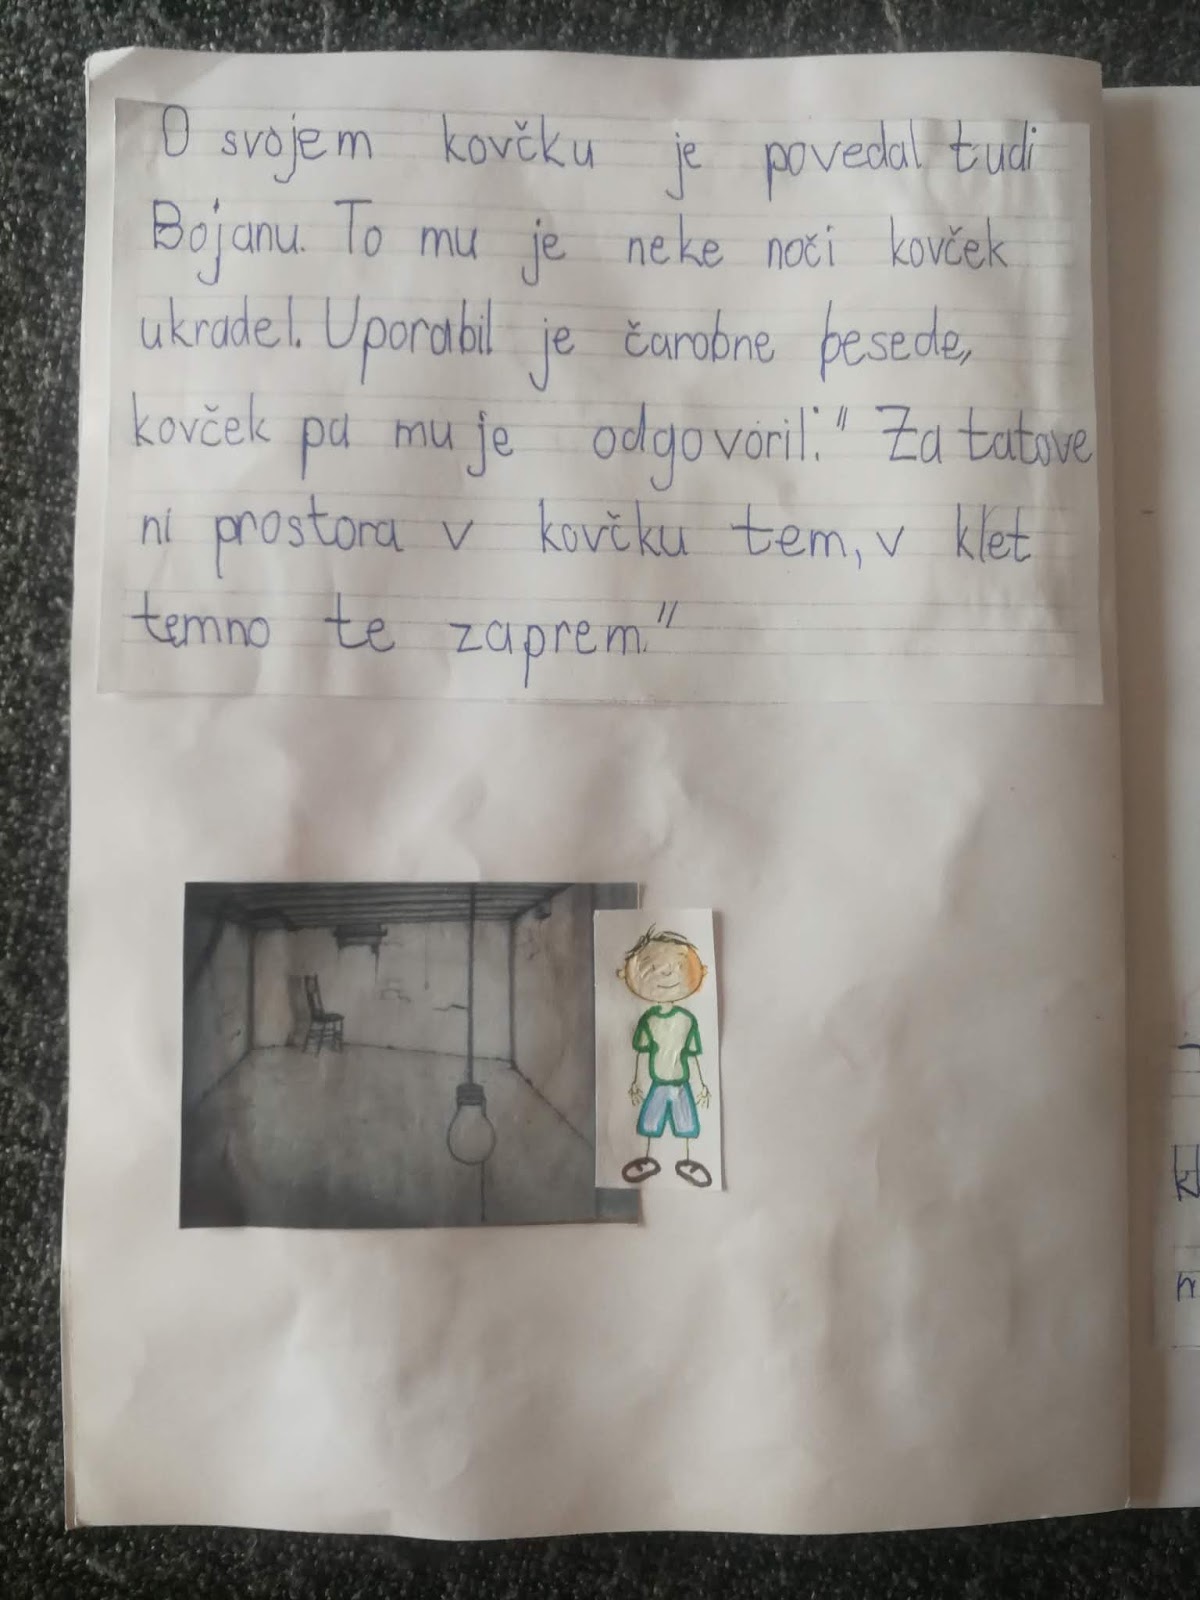 O svojem kovčku je povedal tudi
Bojanu. To mu je neke noči kovček
ukradel. Uporabil je čarobne besede,
kovček pa mu je odgovoril: "Za tatove
ni prostora v kovčku tem, v klet
temno te zaprem."